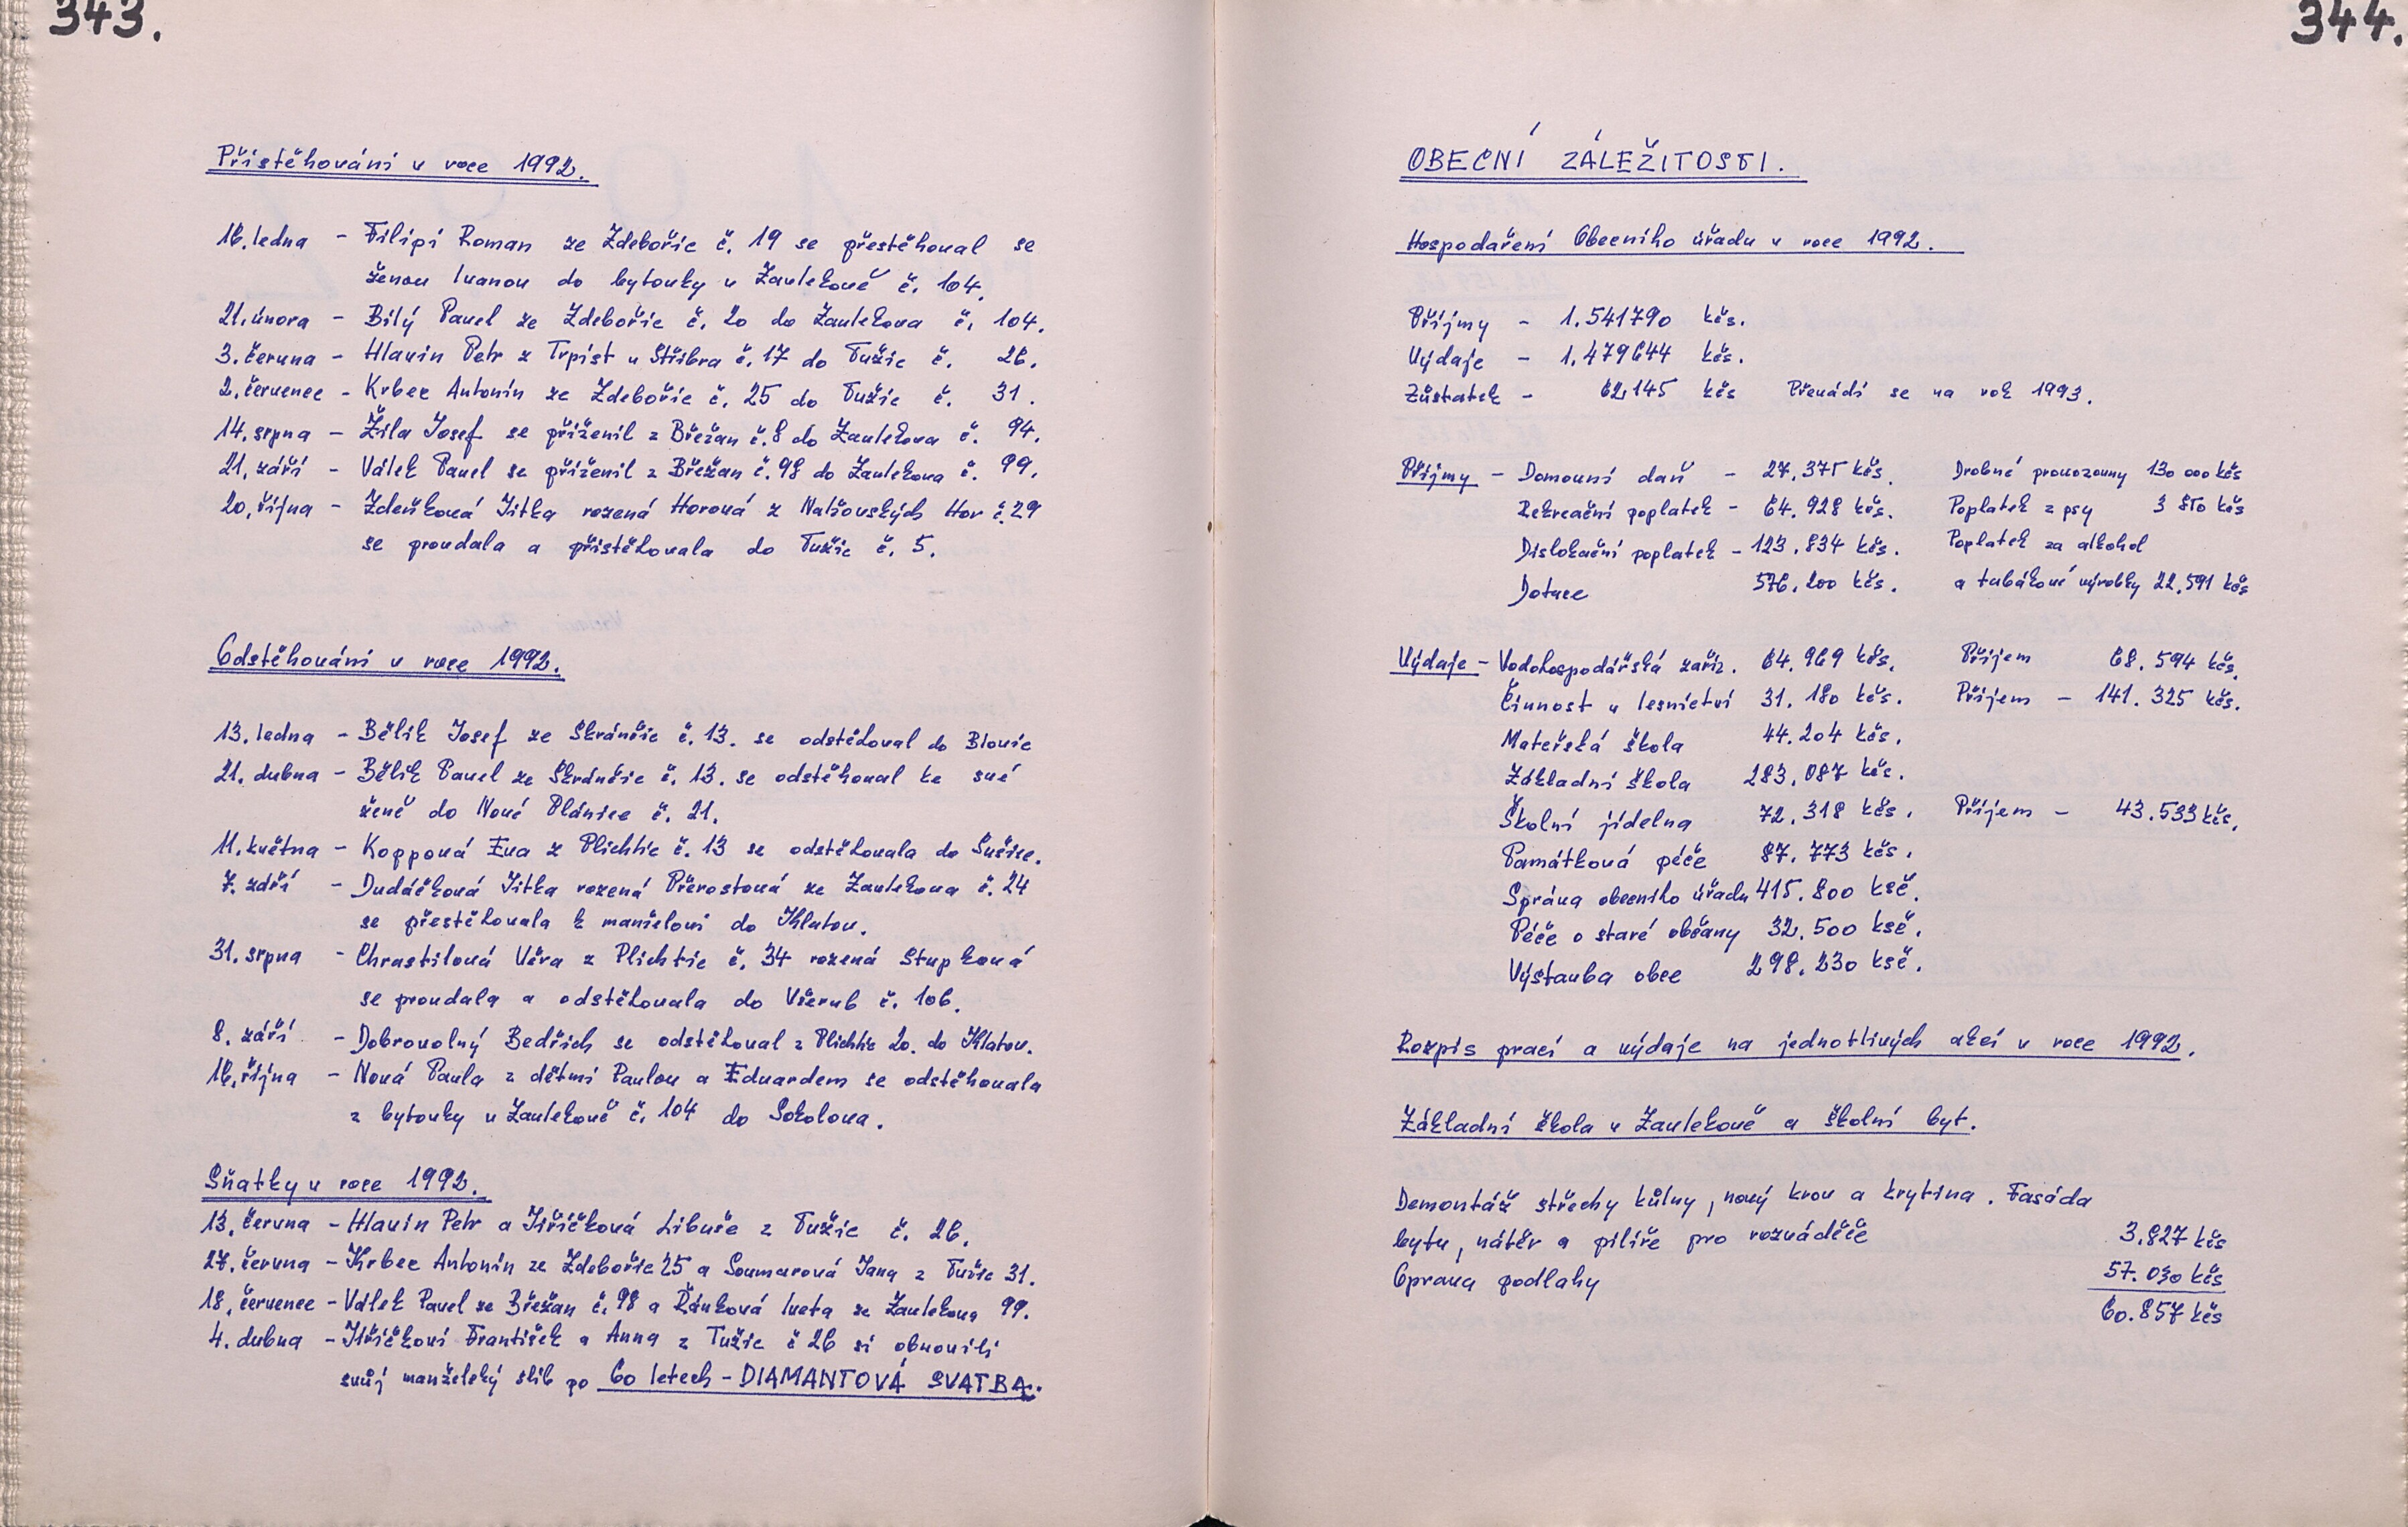 343.
Přistěhování v roce 1992.
16. ledna - Filipi Roman ze Zdebořic č. 19 se přestěhoval se
ženou Ivanou do bytovky v Zavlekově č. 104.
21. února - Bílý Pavel ze Zdebořic č. 20 do Zavlekova č. 104.
3. června - Hlavin Petr z Trpist u Stříbra č. 17 do Tužic č. 26.
2. červenec - Krbec Antonín ze Zdebořic č. 25 do Tužic č. 31.
14. srpna - Žila Josef se přiženil z Břežan č. 8 do Zavlekova č. 94.
21. září - Válek Pavel se přiženil z Břežan č. 98 do Zavlekova č. 99.
20. října - Zdeňková Jitka rozená Horová z Nalžovských Hor č. 29
se provdala a přistěhovala do Tužic č. 5.
Odstěhování v roce 1992.
13. ledna - Bělík Josef ze Skránčic č. 13. se odstěhoval do Blovic
21. dubna - Bělík Pavel ze Skránčic č. 13. se odstěhoval ke své
ženě do Nové Plánice č. 21.
11. května - Koppová Eva z Plichtic č. 13 se odstěhovala do Sušice.
7. září - Dudáčková Jitka rozená Přerostová ze Zavlekova č. 24
se přestěhovala k manželovi do Klatov.
31. srpna - Chrastilová Věra z Plichtic č. 34 rozená Stupková
se provdala a odstěhovala do Všerub č. 106.
8. září - Dobrovolný Bedřich se odstěhoval z Plichtic 20. do Klatov.
16. října - Nová Pavla z dětmi Pavlou a Eduardem se odstěhovala
z bytovky v Zavlekově č. 104 do Sokolova.
Sňatky v roce 1992.
13. června - Hlavin Petr a Jiřičková Libuše z Tužic č. 26.
27. června - Krbec Antonín ze Zdebořic 25 a Soumarová Jana z Tužic 31.
18. červenec - Válek Pavel ze Břežan č. 98 a Řánková Iveta ze Zavlekova 99.
4. dubna - Jiřičkovi František a Anna z Tužic č 26 si obnovili
svůj manželský slib po 60 letech - DIAMANTOVÁ SVATBA.
344.
OBECNÍ ZÁLEŽITOSTI.
Hospodaření Obecního úřadu v roce 1992.
Příjmy - 1.541790 kčs.
Výdaje - 1.479644 kčs.
Zůstatek - 62,145 kčs Převádí se na rok 1993.
Příjmy - Domovní daň - 27.375 kčs. Drobné provozovny 130 000 kčs
Rekreační poplatek - 64.928 kčs. Poplatek z psy 3 850 kčs
Dislokační poplatek - 123.834 kčs. Poplatek za alkohol
Dotace 576.200 kčs. a tabákové výrobky 22.591 kčs
Výdaje - Vodohospodářská zaříz. 64.969 kčs. Příjem 68.594 kčs.
Činnost v lesnictví 31.180 kčs. Příjem - 141.325 kčs.
Mateřská škola 44.204 kčs.
Základní škola 283.087 kčs.
Školní jídelna 72.318 kčs. Příjem - 43.533 kčs.
Památková péče 87.773 kčs.
Správa obecního úřadu 415.800 ksč.
Péče o staré občany 32.500 ksč.
Výstavba obce 298.230 ksč.
Rozpis prací a výdaje na jednotlivých akcí v roce 1992.
Základní škola v Zavlekově a školní byt.
Demontáž střechy kůlny, nový krov a krytina. Fasáda
bytu, nátěr a pilíře pro rozváděče 3.827 kčs
Oprava podlahy 57.030 kčs
60.857 kčs